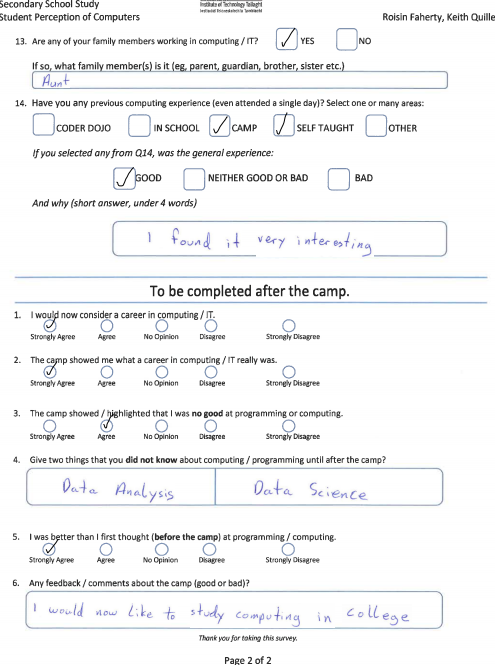 Secondary School Study
Student Perception of Computers
Institute of Technology Tallaght
Roisin Faherty, Keith Quille
13. Are any of your family members working in computing / IT? YES NO
If so, what family member(s) is it (eg, parent, guardian, brother, sister etc.)
Aunt
14. Have you any previous computing experience (even attended a single day)? Select one or many areas:
CODER DOJO IN SCHOOL CAMP SELF TAUGHT OTHER
If you selected any from Q14, was the general experience:
GOOD NEITHER GOOD OR BAD BAD
And why (short answer, under 4 words)
I found it very interesting
To be completed after the camp.
1. I would now consider a career in computing / IT.
Strongly Agree Agree No Opinion Disagree Strongly Disagree
2. The camp showed me what a career in computing / IT really was.
Strongly Agree Agree No Opinion Disagree Strongly Disagree
3. The camp showed / highlighted that I was no good at programming or computing.
Strongly Agree Agree No Opinion Disagree Strongly Disagree
4. Give two things that you did not know about computing / programming until after the camp?
Data Analysis Data Science
5. I was better than I first thought (before the camp) at programming / computing.
Strongly Agree Agree No Opinion Disagree Strongly Disagree
6. Any feedback / comments about the camp (good or bad)?
I would now like to study computing in college
Thank you for taking this survey.
Page 2 of 2